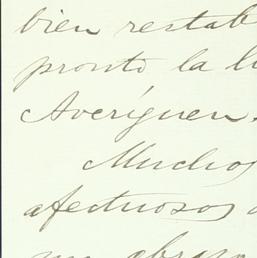 bien restab
pronto la l
Averíguen.
Muchos
afectuosos
un abrazo